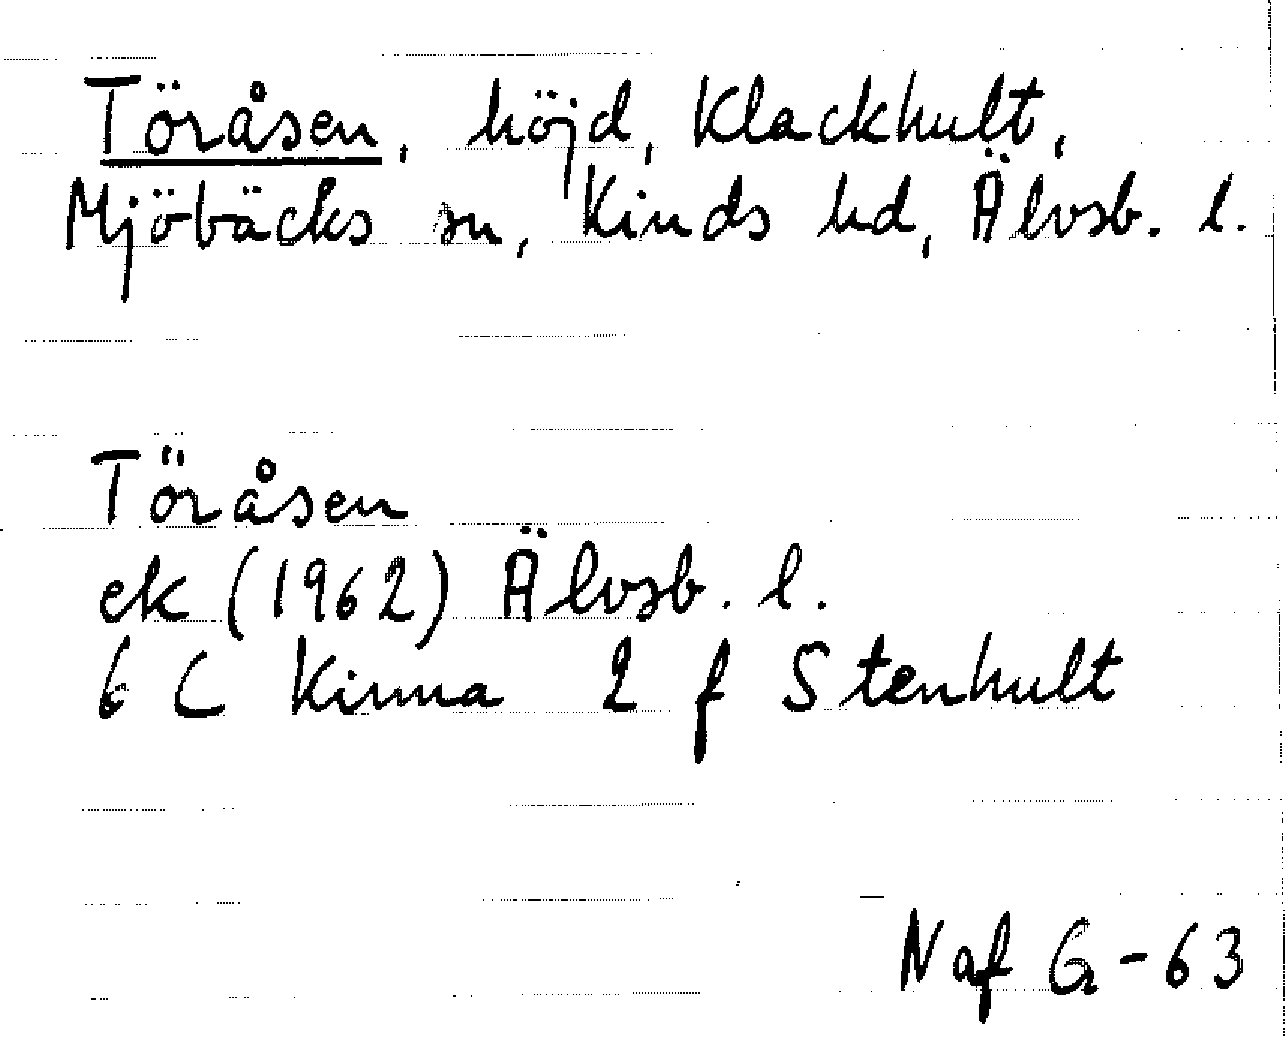 Töråsen, höjd, Klackhult,
Mjöbäcks sn, Kinds hd, Älvsb. l.
Töråsen
ek (1962) Älvsb. l.
6 C Kinna 2 f Stenhult
Naf G-63